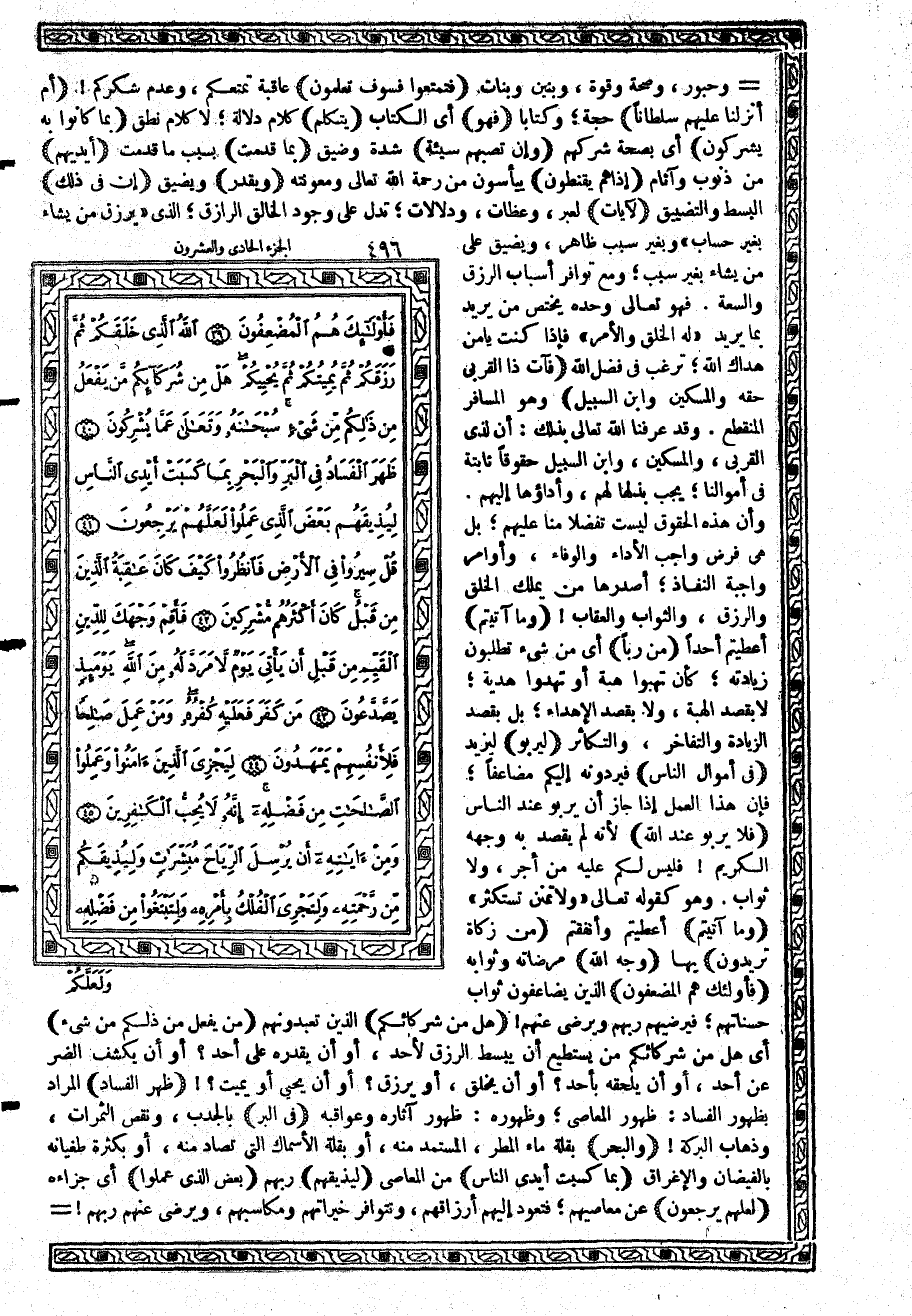 = وحبور ، وصحة وقوة ، وبنين وبنات. (فتمتعوا فسوف تعلمون) عاقبة تمتعكم ، وعدم شكركم !. (أم
أنزلنا عليهم سلطاناً) حجة؛ وكتابا (فهو) أى الكتاب (يتكلم) كلام دلالة ؛ لا كلام نطق (بما كانوا به
يشركون) أى بصحة شركهم (وإن تصبهم سيئة) شدة وضيق (بما قدمت) بسبب ما قدمت (أيديهم)
من ذنوب وآثام (إذاهم يقنطون) ييأسون من رحمة الله تعالى ومعونته (ويقدر) ويضيق (إن فى ذلك)
البسط والتضييق (لآيات) لعبر ، وعظات ، ودلالات ؛ تدل على وجود الخالق الرازق ؛ الذى «يرزق من يشاء
بغير حساب» وبغير سبب ظاهر ، ويضيق على
من يشاء بغير سبب؛ ومع توافر أسباب الرزق
والسعة . فهو تعالى وحده يختص من يريد
بما يريد «له الخلق والأمر» فإذا كنت يامن
هداك الله ؛ ترغب فى فضل الله (فآت ذا القربى
حقه والمسكين وابن السبيل) وهو المسافر
المنقطع . وقد عرفنا الله تعالى بذلك : أن لذى
القربى ، والمسكين ، وابن السبيل حقوقاً ثابتة
فى أموالنا ؛ يجب بذلها لهم ، وأداؤها إليهم .
وأن هذه الحقوق ليست تفضلا منا عليهم ؛ بل
هى فرض واجب الأداء والوفاء ، وأوامر
واجبة النفاذ ؛ أصدرها من يملك الخلق
والرزق ، والثواب والعقاب ! (وما آتيتم)
أعطيتم أحداً (من رباً) أى من شىء تطلبون
زيادته ؛ كأن تهبوا هبة أو تهدوا هدية ؛
لابقصد الهبة ، ولا بقصد الإهداء ؛ بل بقصد
الزيادة والتفاخر ، والتكاثر (ليربو) ليزيد
(فى أموال الناس) فيردونه إليكم مضاعفاً ؛
فإن هذا العمل إذا جاز أن يربو عند الناس
(فلا يربو عند الله) لأنه لم يقصد به وجهه
الكريم ! فليس لكم عليه من أجر ، ولا
ثواب . وهو كقوله تعالى «ولا تمنن تستكثر»
(وما آتيتم) أعطيتم وأنفقتم (من زكاة
تريدون) بها (وجه الله) مرضاته وثوابه
(فأولئك هم المضعفون) الذين يضاعفون ثواب
٤٩٦ الجزء الحادى والعشرون
فَأُوْلَٰٓئِكَ هُمُ ٱلْمُضْعِفُونَ ﴿٣٩﴾ ٱللَّهُ ٱلَّذِى خَلَقَكُمْ ثُمَّ
رَزَقَكُمْ ثُمَّ يُمِيتُكُمْ ثُمَّ يُحْيِيكُمْ ۖ هَلْ مِن شُرَكَآئِكُم مَّن يَفْعَلُ
مِن ذَٰلِكُم مِّن شَىْءٍ ۚ سُبْحَٰنَهُۥ وَتَعَٰلَىٰ عَمَّا يُشْرِكُونَ ﴿٤٠﴾
ظَهَرَ ٱلْفَسَادُ فِى ٱلْبَرِّ وَٱلْبَحْرِ بِمَا كَسَبَتْ أَيْدِى ٱلنَّاسِ
لِيُذِيقَهُم بَعْضَ ٱلَّذِى عَمِلُواْ لَعَلَّهُمْ يَرْجِعُونَ ﴿٤١﴾
قُلْ سِيرُواْ فِى ٱلْأَرْضِ فَٱنظُرُواْ كَيْفَ كَانَ عَٰقِبَةُ ٱلَّذِينَ
مِن قَبْلُ ۚ كَانَ أَكْثَرُهُم مُّشْرِكِينَ ﴿٤٢﴾ فَأَقِمْ وَجْهَكَ لِلدِّينِ
ٱلْقَيِّمِ مِن قَبْلِ أَن يَأْتِىَ يَوْمٌ لَّا مَرَدَّ لَهُۥ مِنَ ٱللَّهِ ۖ يَوْمَئِذٍ
يَصَّدَّعُونَ ﴿٤٣﴾ مَن كَفَرَ فَعَلَيْهِ كُفْرُهُۥ ۖ وَمَنْ عَمِلَ صَٰلِحًا
فَلِأَنفُسِهِمْ يَمْهَدُونَ ﴿٤٤﴾ لِيَجْزِىَ ٱلَّذِينَ ءَامَنُواْ وَعَمِلُواْ
ٱلصَّٰلِحَٰتِ مِن فَضْلِهِۦٓ ۚ إِنَّهُۥ لَا يُحِبُّ ٱلْكَٰفِرِينَ ﴿٤٥﴾
وَمِنْ ءَايَٰتِهِۦٓ أَن يُرْسِلَ ٱلرِّيَاحَ مُبَشِّرَٰتٍ وَلِيُذِيقَكُم
مِّن رَّحْمَتِهِۦ وَلِتَجْرِىَ ٱلْفُلْكُ بِأَمْرِهِۦ وَلِتَبْتَغُواْ مِن فَضْلِهِۦ
وَلَعَلَّكُمْ
حسناتهم ؛ فيرضيهم ربهم ويرضى عنهم! (هل من شركائكم) الذين تعبدونهم (من يفعل من ذلكم من شىء)
أى هل من شركائكم من يستطيع أن يبسط الرزق لأحد ، أو أن يقدره على أحد ؟ أو أن يكشف الضر
عن أحد ، أو أن يلحقه بأحد ؟ أو أن يخلق ، أو يرزق ؟ أو أن يحيى أو يميت ؟ ! (ظهر الفساد) المراد
بظهور الفساد : ظهور المعاصى ؛ وظهوره : ظهور آثاره وعواقبه (فى البر) بالجدب ، ونقص الثمرات ،
وذهاب البركة ! (والبحر) بقلة ماء المطر ، المستمد منه ، أو بقلة الأسماك التى تصاد منه ، أو بكثرة طغيانه
بالفيضان والإغراق (بما كسبت أيدى الناس) من المعاصى (ليذيقهم) ربهم (بعض الذى عملوا) أى جزاءه
(لعلهم يرجعون) عن معاصيهم ؛ فتعود إليهم أرزاقهم ، وتتوافر خيراتهم ومكاسبهم ، ويرضى عنهم ربهم ! =